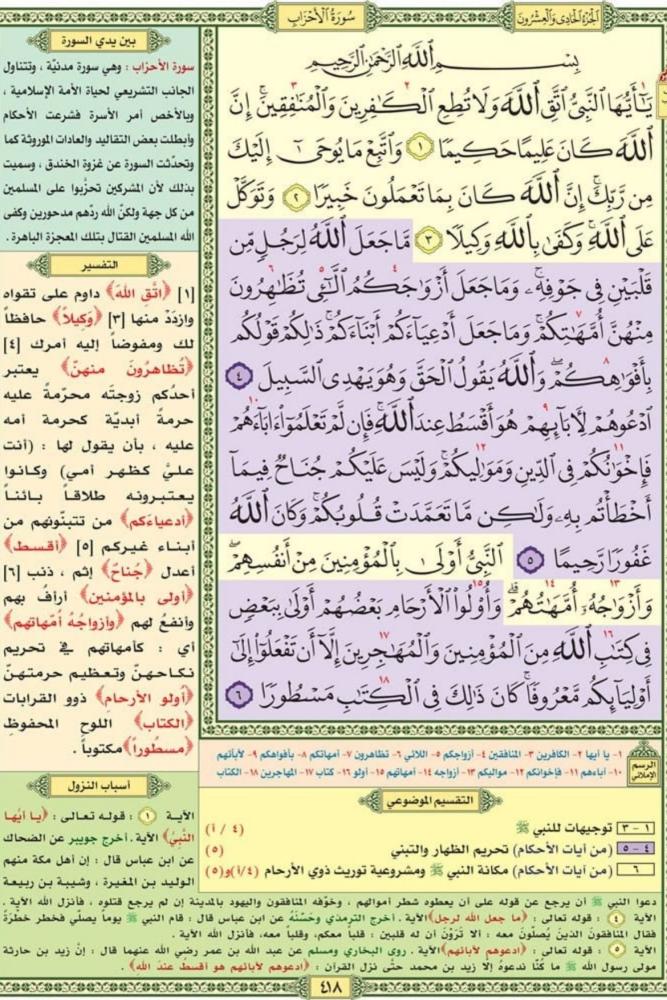 سُورَةُ الأَحْزَابِ
الجُزْءُ الحَادِي وَالعِشْرُونَ
بِسْمِ اللَّهِ الرَّحْمَٰنِ الرَّحِيمِ
يَٰٓأَيُّهَا النَّبِيُّ اتَّقِ اللَّهَ وَلَا تُطِعِ الْكَٰفِرِينَ وَالْمُنَٰفِقِينَ إِنَّ
اللَّهَ كَانَ عَلِيمًا حَكِيمًا ١ وَاتَّبِعْ مَا يُوحَىٰٓ إِلَيْكَ
مِن رَّبِّكَ إِنَّ اللَّهَ كَانَ بِمَا تَعْمَلُونَ خَبِيرًا ٢ وَتَوَكَّلْ
عَلَى اللَّهِ وَكَفَىٰ بِاللَّهِ وَكِيلًا ٣ مَّا جَعَلَ اللَّهُ لِرَجُلٍ مِّن
قَلْبَيْنِ فِي جَوْفِهِۦ وَمَا جَعَلَ أَزْوَٰجَكُمُ الَّٰٓـِٔي تُظَٰهِرُونَ
مِنْهُنَّ أُمَّهَٰتِكُمْ وَمَا جَعَلَ أَدْعِيَآءَكُمْ أَبْنَآءَكُمْ ذَٰلِكُمْ قَوْلُكُم
بِأَفْوَٰهِكُمْ وَاللَّهُ يَقُولُ الْحَقَّ وَهُوَ يَهْدِي السَّبِيلَ ٤
ادْعُوهُمْ لِآبَآئِهِمْ هُوَ أَقْسَطُ عِندَ اللَّهِ فَإِن لَّمْ تَعْلَمُوٓا۟ ءَابَآءَهُمْ
فَإِخْوَٰنُكُمْ فِي الدِّينِ وَمَوَٰلِيكُمْ وَلَيْسَ عَلَيْكُمْ جُنَاحٌ فِيمَآ
أَخْطَأْتُم بِهِۦ وَلَٰكِن مَّا تَعَمَّدَتْ قُلُوبُكُمْ وَكَانَ اللَّهُ
غَفُورًا رَّحِيمًا ٥ النَّبِيُّ أَوْلَىٰ بِالْمُؤْمِنِينَ مِنْ أَنفُسِهِمْ
وَأَزْوَٰجُهُۥٓ أُمَّهَٰتُهُمْ وَأُو۟لُوا الْأَرْحَامِ بَعْضُهُمْ أَوْلَىٰ بِبَعْضٍ
فِي كِتَٰبِ اللَّهِ مِنَ الْمُؤْمِنِينَ وَالْمُهَٰجِرِينَ إِلَّآ أَن تَفْعَلُوٓا۟ إِلَىٰٓ
أَوْلِيَآئِكُم مَّعْرُوفًا كَانَ ذَٰلِكَ فِي الْكِتَٰبِ مَسْطُورًا ٦
بين يدي السورة
سورة الأحزاب : وهي سورة مدنيّة ، وتتناول
الجانب التشريعي لحياة الأمة الإسلامية ،
وبالأخص أمر الأسرة فشرعت الأحكام
وأبطلت بعض التقاليد والعادات الموروثة كما
وتحدّثت السورة عن غزوة الخندق ، وسميت
بذلك لأن المشركين تحزّبوا على المسلمين
من كل جهة ولكنّ الله ردّهم مدحورين وكفى
الله المسلمين القتال بتلك المعجزة الباهرة .
التفسير
[١] ﴿اتَّقِ اللهَ﴾ داوم على تقواه
وازدَدْ منها [٣] ﴿وَكيلاً﴾ حافظاً
لك ومفوضاً إليه أمرك [٤]
﴿تُظاهرُونَ منهنّ﴾ يعتبر
أحدُكم زوجتَه محرّمة عليه
حرمة أبديّة كحرمة أمه
عليه ، بأن يقول لها : (أنت
عليّ كظهر أمي) وكانوا
يعتبرونه طلاقاً بائناً
﴿أدعياءَكم﴾ من تتبنّونهم من
أبناء غيركم [٥] ﴿أقسط﴾
أعدل ﴿جُناحٌ﴾ إثم ، ذنب [٦]
﴿أولى بالمؤمنين﴾ أرأف بهم
وأنفعُ لهم ﴿وأزواجُهُ أمّهاتهم﴾
أي : كأمهاتهم في تحريم
نكاحهنّ وتعظيم حرمتهنّ
﴿أولو الأرحام﴾ ذوو القرابات
﴿الكتاب﴾ اللوح المحفوظ
﴿مسطوراً﴾ مكتوباً .
الرسم الإملائي
١- يا أيها ٢- الكافرين ٣- المنافقين ٤- أزواجكم ٥- اللائي ٦- تظاهرون ٧- أمهاتكم ٨- بأفواهكم ٩- لآبائهم
١٠- آباءهم ١١- فإخوانكم ١٢- مواليكم ١٣- أزواجه ١٤- أمهاتهم ١٥- أولو ١٦- كتاب ١٧- المهاجرين ١٨- الكتاب
التقسيم الموضوعي
١ - ٣ توجيهات للنبي ﷺ (٤ / أ)
٤ - ٥ (من آيات الأحكام) تحريم الظهار والتبني (٥)
٦ (من آيات الأحكام) مكانة النبي ﷺ ومشروعية توريث ذوي الأرحام (٤/أ)و(٥)
أسباب النزول
الآية ١ : قوله تعالى : ﴿يا أيُها
النَّبيُّ﴾ الآية . أخرج جويبر عن الضحاك
عن ابن عباس قال : إن أهل مكة منهم
الوليد بن المغيرة ، وشيبة بن ربيعة
دعوا النبي ﷺ أن يرجع عن قوله على أن يعطوه شطر أموالهم ، وخوّفه المنافقون واليهود بالمدينة إن لم يرجع قتلوه ، فأنزل الله الآية .
الآية ٤ : قوله تعالى : ﴿ما جعل الله لرجل﴾ الآية . أخرج الترمذي وحسّنه عن ابن عباس قال : قام النبي ﷺ يوماً يصلّي فخطر خطْرَةً
فقال المنافقون الذين يُصلّون معه : ألا تَرَوْن أن له قلبين : قلباً معكم، وقلباً معه، فأنزل الله الآية .
الآية ٥ : قوله تعالى : ﴿ادعوهم لآبائهم﴾ الآية . روى البخاري ومسلم عن عبد الله بن عمر رضي الله عنهما قال : إن زيد بن حارثة
مولى رسول الله ﷺ ما كنّا ندعوهُ إلا زيد بن محمد حتّى نزل القرآن : ﴿ادعوهم لآبائهم هو أقسط عند الله﴾ .
٤١٨